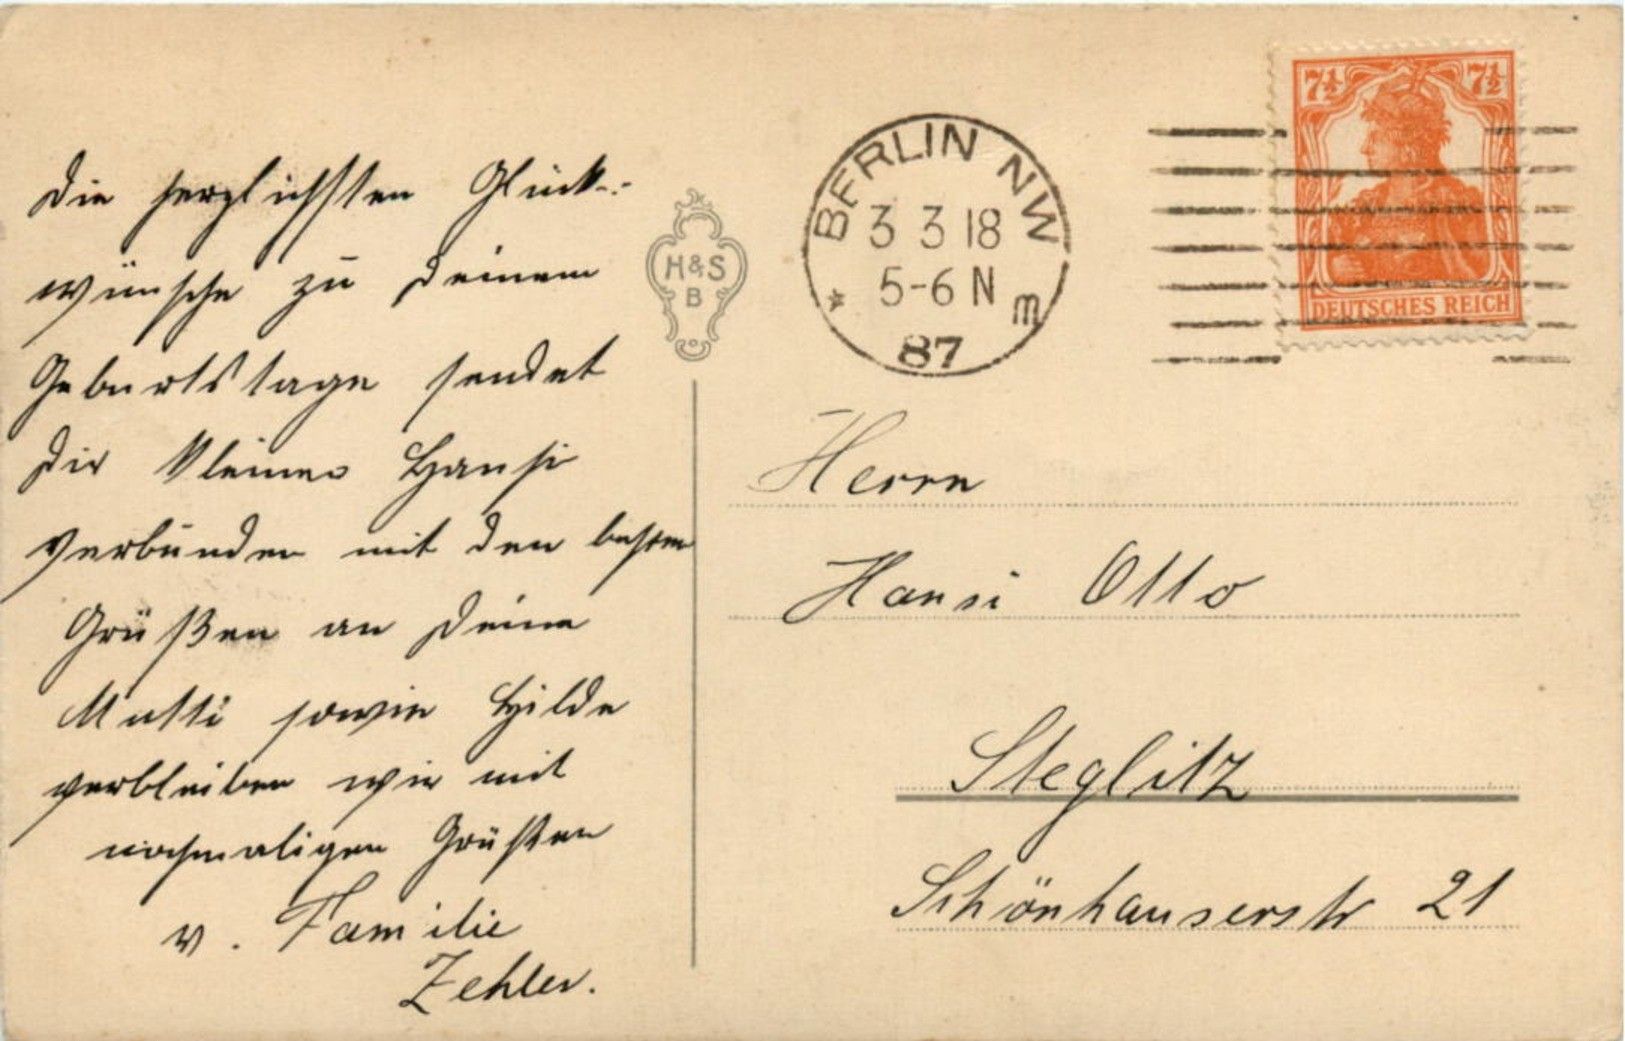 Die herzlichsten Glück-
wünsche zu Deinem
Geburtstage sendet
Dir kleiner Hansi
verbunden mit den besten
Grüßen an Deine
Mutti sowie Hilde
verbleiben wir mit
nochmaligen Grüßen
v. Familie
Zehler.
H&S
B
BERLIN NW
3 3 18
5-6 N
* m
87
7½ 7½
DEUTSCHES REICH
Herrn
Hansi Otto
Steglitz
Schönhauserstr 21